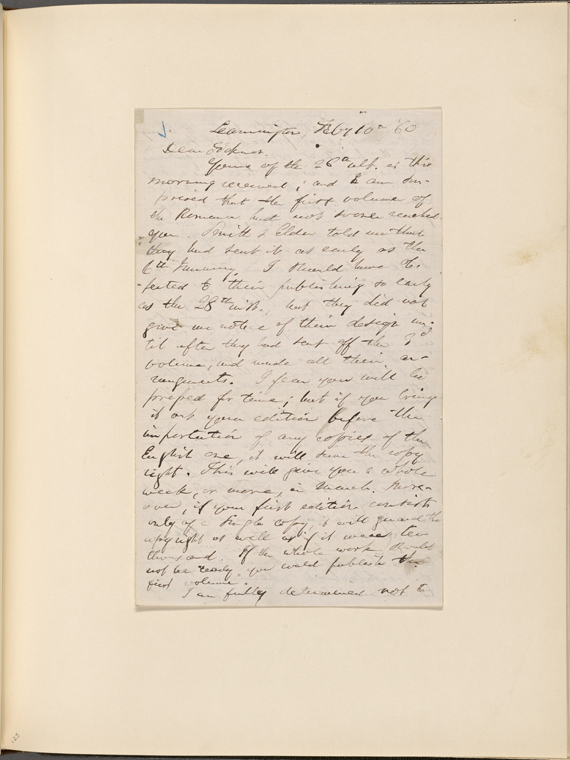 Leamington, Feby 10th '60
Dear Ticknor,
Yours of the 26th ult. is this
morning received; and I am sur-
prised that the first volume of
the Romance had not sooner reached
you. Smith & Elder told me that
they had sent it as early as the
6th January. I should have ob-
jected to their publishing so early
as the 28th inst., but they did not
give me notice of their design un-
til after they had sent off the 3d
volume, and made all their ar-
rangements. I fear you will be
pressed for time; but if you bring
it out your edition before the
importation of any copies of the
English one, it will save the copy
right. This will give you a whole
week, or more, in March. More-
over, if your first edition consists
only of a single copy, it will guard the
copyright as well as if it were ten
thousand. If the whole work should
not be ready, you could publish the
first volume.
I am fully determined not to